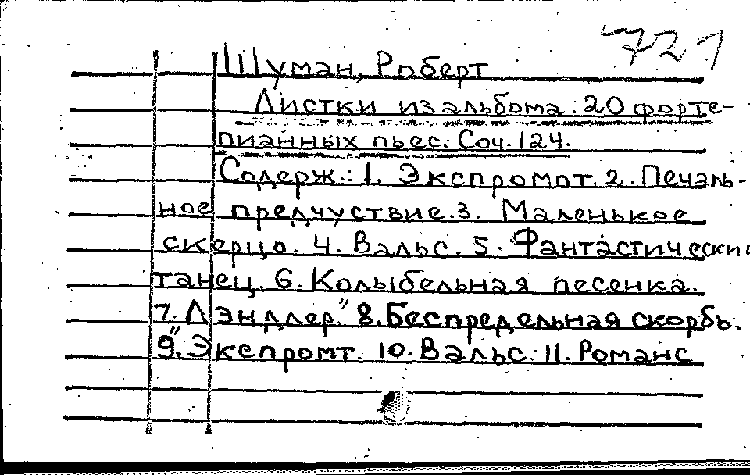 721
Шуман, Роберт
Листки из альбома: 20 форте-
пианных пьес. Соч. 124.
Содерж.: 1. Экспромот. 2. Печаль-
ное предчуствие. 3. Маленькое
скерцо. 4. Вальс. 5. Фантастически
танец. 6. Колыбельная песенка.
7. "Лэндлер" 8. Беспредельная скорбь.
9. Экспромт. 10. Вальс. 11. Романс